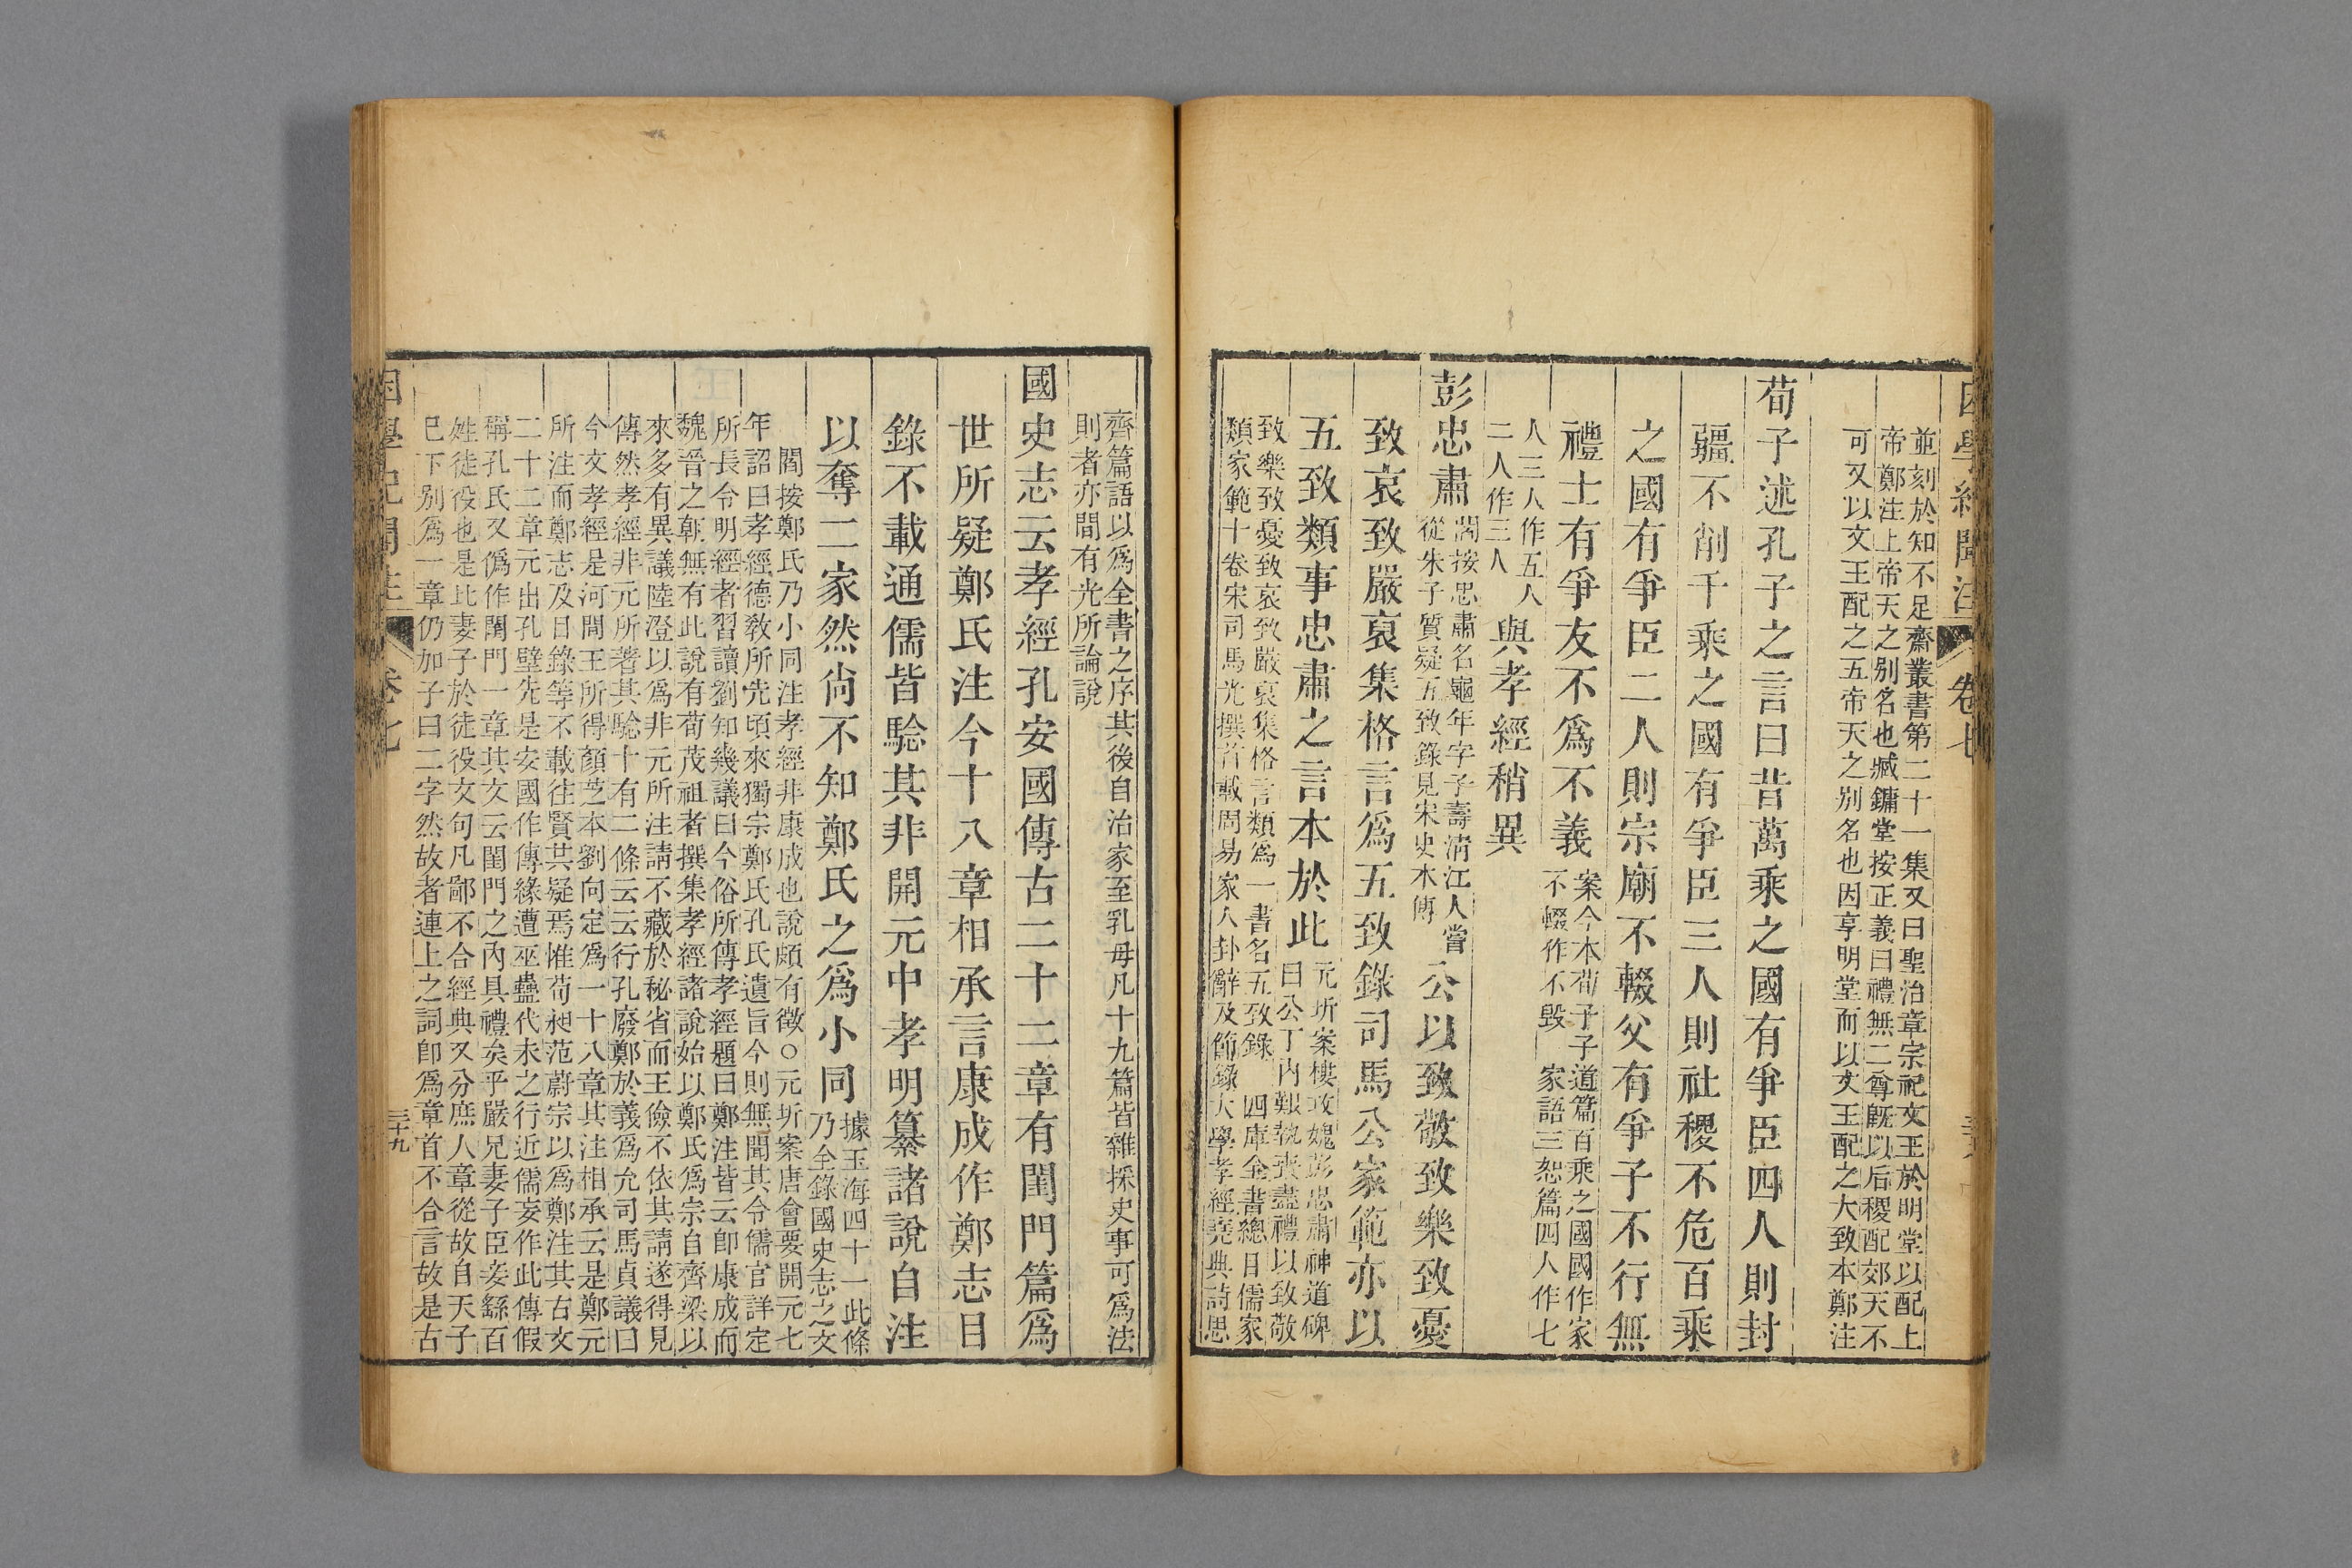 並刻於知不足齋叢書第二十一集又曰聖治章宗祀文王於明堂以配上
帝鄭注上帝天之別名也臧鏞堂按正義曰禮無二尊旣以后稷配郊天不
可又以文王配之五帝天之別名也因享明堂而以文王配之大致本鄭注
荀子述孔子之言曰昔萬乘之國有爭臣四人則封
疆不削千乘之國有爭臣三人則社稷不危百乘
之國有爭臣二人則宗廟不輟父有爭子不行無
禮士有爭友不爲不義
案今本荀子子道篇百乘之國國作家
不輟作不毀 家語三恕篇四人作七
人三人作五人
二人作三人
與孝經稍異
彭忠肅
閻按忠肅名龜年字子壽清江人嘗
從朱子質疑五致錄見宋史本傳
公以致敬致樂致憂
致哀致嚴裒集格言爲五致錄司馬公家範亦以
五致類事忠肅之言本於此
元圻案樓攻媿彭忠肅神道碑
曰公丁內艱執喪盡禮以致敬
致樂致憂致哀致嚴裒集格言類爲一書名五致錄 四庫全書總目儒家
類家範十卷宋司馬光撰首載周易家人卦辭及節錄大學孝經堯典詩思
齊篇語以爲全書之序其後自治家至乳母凡十九篇皆雜採史事可爲法
則者亦間有光所論說
國史志云孝經孔安國傳古二十二章有閨門篇爲
世所疑鄭氏注今十八章相承言康成作鄭志目
錄不載通儒皆驗其非開元中孝明纂諸說自注
以奪二家然尙不知鄭氏之爲小同
據玉海四十一此條
乃全錄國史志之文
閻按鄭氏乃小同注孝經非康成也說頗有徵○元圻案唐會要開元七
年詔曰孝經德敎所先頃來獨宗鄭氏孔氏遺旨今則無聞其令儒官詳定
所長令明經者習讀劉知幾議曰今俗所傳孝經題曰鄭注皆云卽康成而
魏晉之朝無有此說有荀茂祖者撰集孝經諸說始以鄭氏爲宗自齊梁以
來多有異議陸澄以爲非元所注請不藏於秘省而王儉不依其請遂得見
傳然孝經非元所著其驗十有二條云云行孔廢鄭於義爲允司馬貞議曰
今文孝經是河間王所得顏芝本劉向定爲一十八章其注相承云是鄭元
所注而鄭志及目錄等不載往賢共疑焉惟荀昶范蔚宗以爲鄭注其古文
二十二章元出孔壁先是安國作傳緣遭巫蠱代未之行近儒妄作此傳假
稱孔氏又僞作閨門一章其文云閨門之內具禮矣乎嚴兄妻子臣妾繇百
姓徒役也是比妻子於徒役文句凡鄙不合經典又分庶人章從故自天子
巳下別爲一章仍加子曰二字然故者連上之詞卽爲章首不合言故是古
卷七
三十九